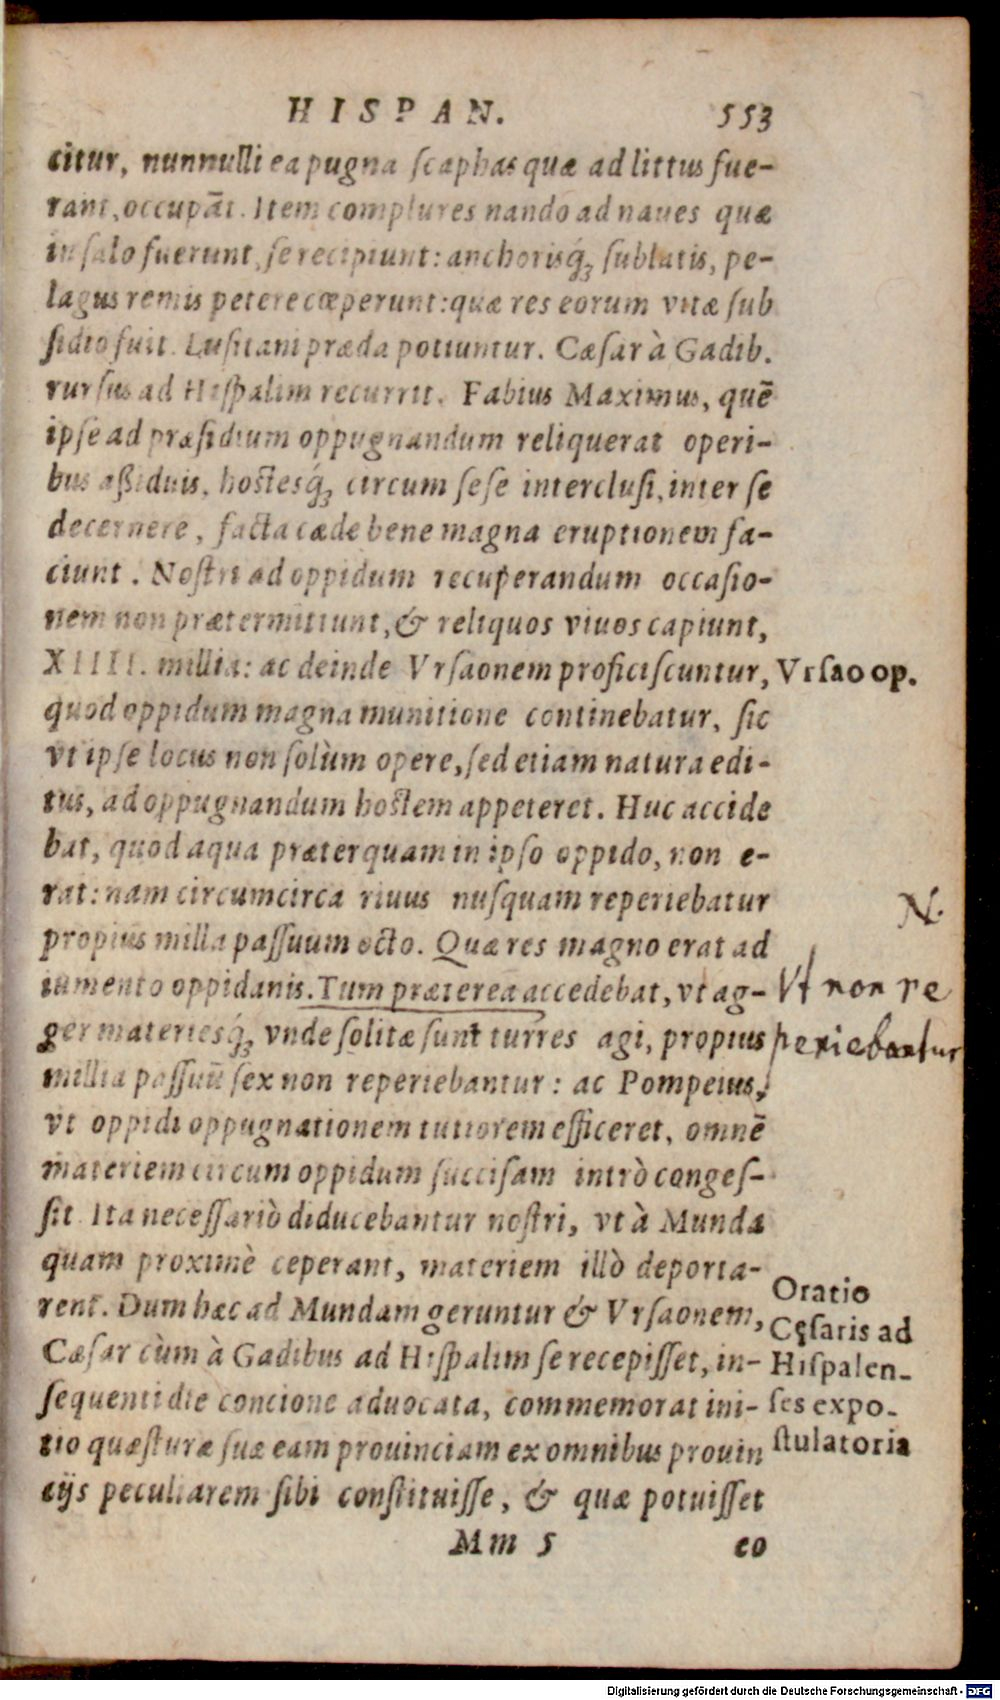 HISPAN. 553
citur, nunnulli ea pugna ſcaphas quæ ad littus fue-
rant, occupāt. Item complures nando ad naues quæ
in ſalo fuerunt, ſe recipiunt: anchorisq́; ſublatis, pe-
lagus remis petere cœperunt: quæ res eorum vitæ ſub
ſidio fuit. Luſitani præda potiuntur. Cæſar à Gadib.
rurſus ad Hiſpalim recurrit. Fabius Maximus, quē
ipſe ad præſidium oppugnandum reliquerat operi-
bus aßiduis, hostesq́; circum ſeſe intercluſi, inter ſe
decernere, facta cæde bene magna eruptionem fa-
ciunt. Noſtri ad oppidum recuperandum occaſio-
nem non prætermittunt, & reliquos viuos capiunt,
XIIII. millia: ac deinde Vrſaonem proficiſcuntur,
Vrſao op.
quod oppidum magna munitione continebatur, ſic
vt ipſe locus non ſolùm opere, ſed etiam natura edi-
tus, ad oppugnandum hostem appeteret. Huc accide
bat, quod aqua præterquam in ipſo oppido, non e-
rat: nam circumcirca riuus nuſquam reperiebatur
N.
propius milla paſſuum octo. Quæ res magno erat ad
iumento oppidanis. Tum præterea accedebat, vt ag-
Vt non re
ger materiesq́; vnde ſolitæ ſunt turres agi, propius
periebantur
millia paſſuū ſex non reperiebantur: ac Pompeius,
vt oppidi oppugnationem tutiorem efficeret, omnē
materiem circum oppidum ſucciſam intrò congeſ-
ſit. Ita neceſſariò diducebantur noſtri, vt à Munda
quam proximè ceperant, materiem illò deporta-
rent. Dum hæc ad Mundam geruntur & Vrſaonem,
Cæſar cùm à Gadibus ad Hiſpalim ſe recepiſſet, in-
ſequenti die concione aduocata, commemorat ini-
tio quæſturæ ſuæ eam prouinciam ex omnibus prouin
cijs peculiarem ſibi conſtituiſſe, & quæ potuiſſet
Oratio
Cęſaris ad
Hiſpalen-
ſes expo-
ſtulatoria
Mm 5 eo
Digitalisierung gefördert durch die Deutsche Forschungsgemeinschaft - DFG